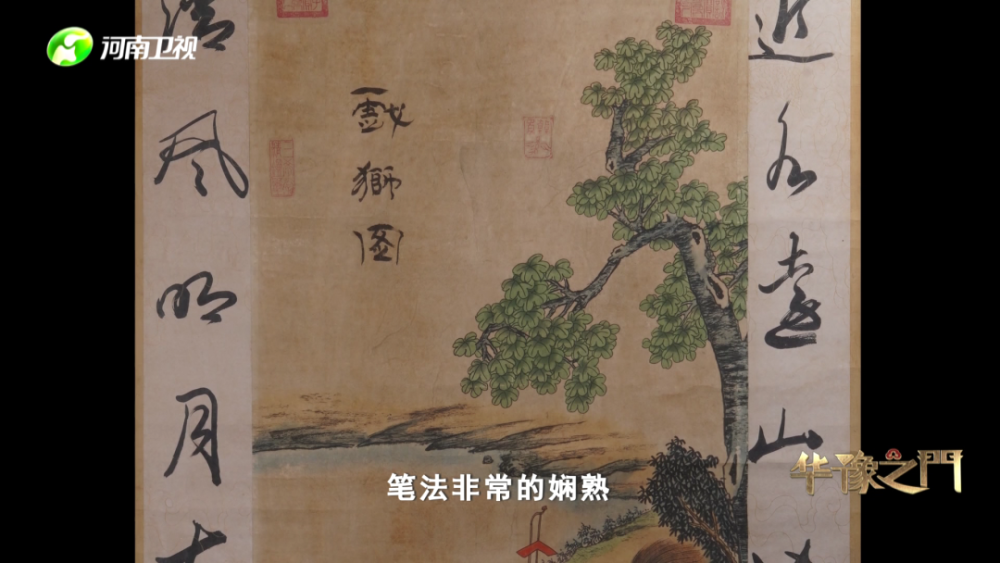 河南卫视
近水遠山
戲獅圖
清风明月
笔法非常的娴熟
华豫之門